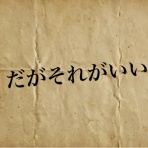 だがそれがいい